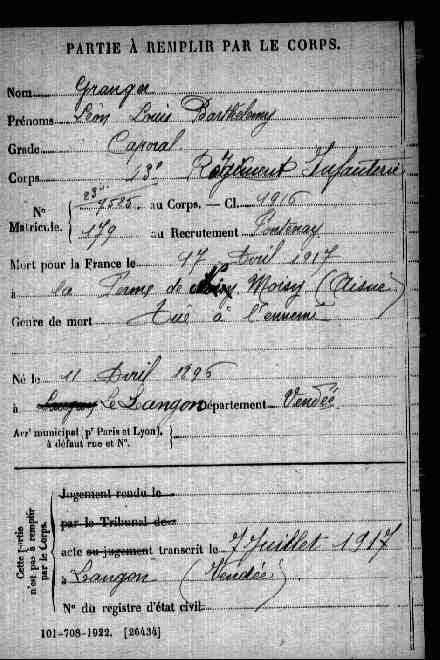 PARTIE À REMPLIR PAR LE CORPS.
Nom Granger
Prénoms Léon Louis Barthélemy
Grade Caporal
Corps 23e Régiment Infanterie
No Matricule. 7525 au Corps. — Cl. 1916
179 au Recrutement Fontenay
Mort pour la France le 17 Avril 1917
à la Ferme de Moisy (Aisne)
Genre de mort Tué à l'ennemi
Né le 11 Avril 1896
à Le Langon Département Vendée
Arr' municipal (p' Paris et Lyon),
à défaut rue et N°.
Cette partie
n'est pas à remplir
par le Corps.
Jugement rendu le
par le Tribunal de
acte ou jugement transcrit le 7 Juillet 1917
à Langon (Vendée)
N° du registre d'état civil
101-708-1922. [26434]